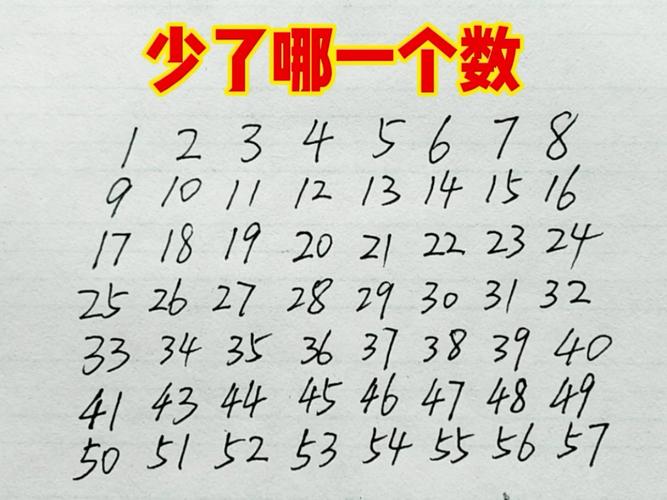 少了哪一个数
1 2 3 4 5 6 7 8
9 10 11 12 13 14 15 16
17 18 19 20 21 22 23 24
25 26 27 28 29 30 31 32
33 34 35 36 37 38 39 40
41 43 44 45 46 47 48 49
50 51 52 53 54 55 56 57